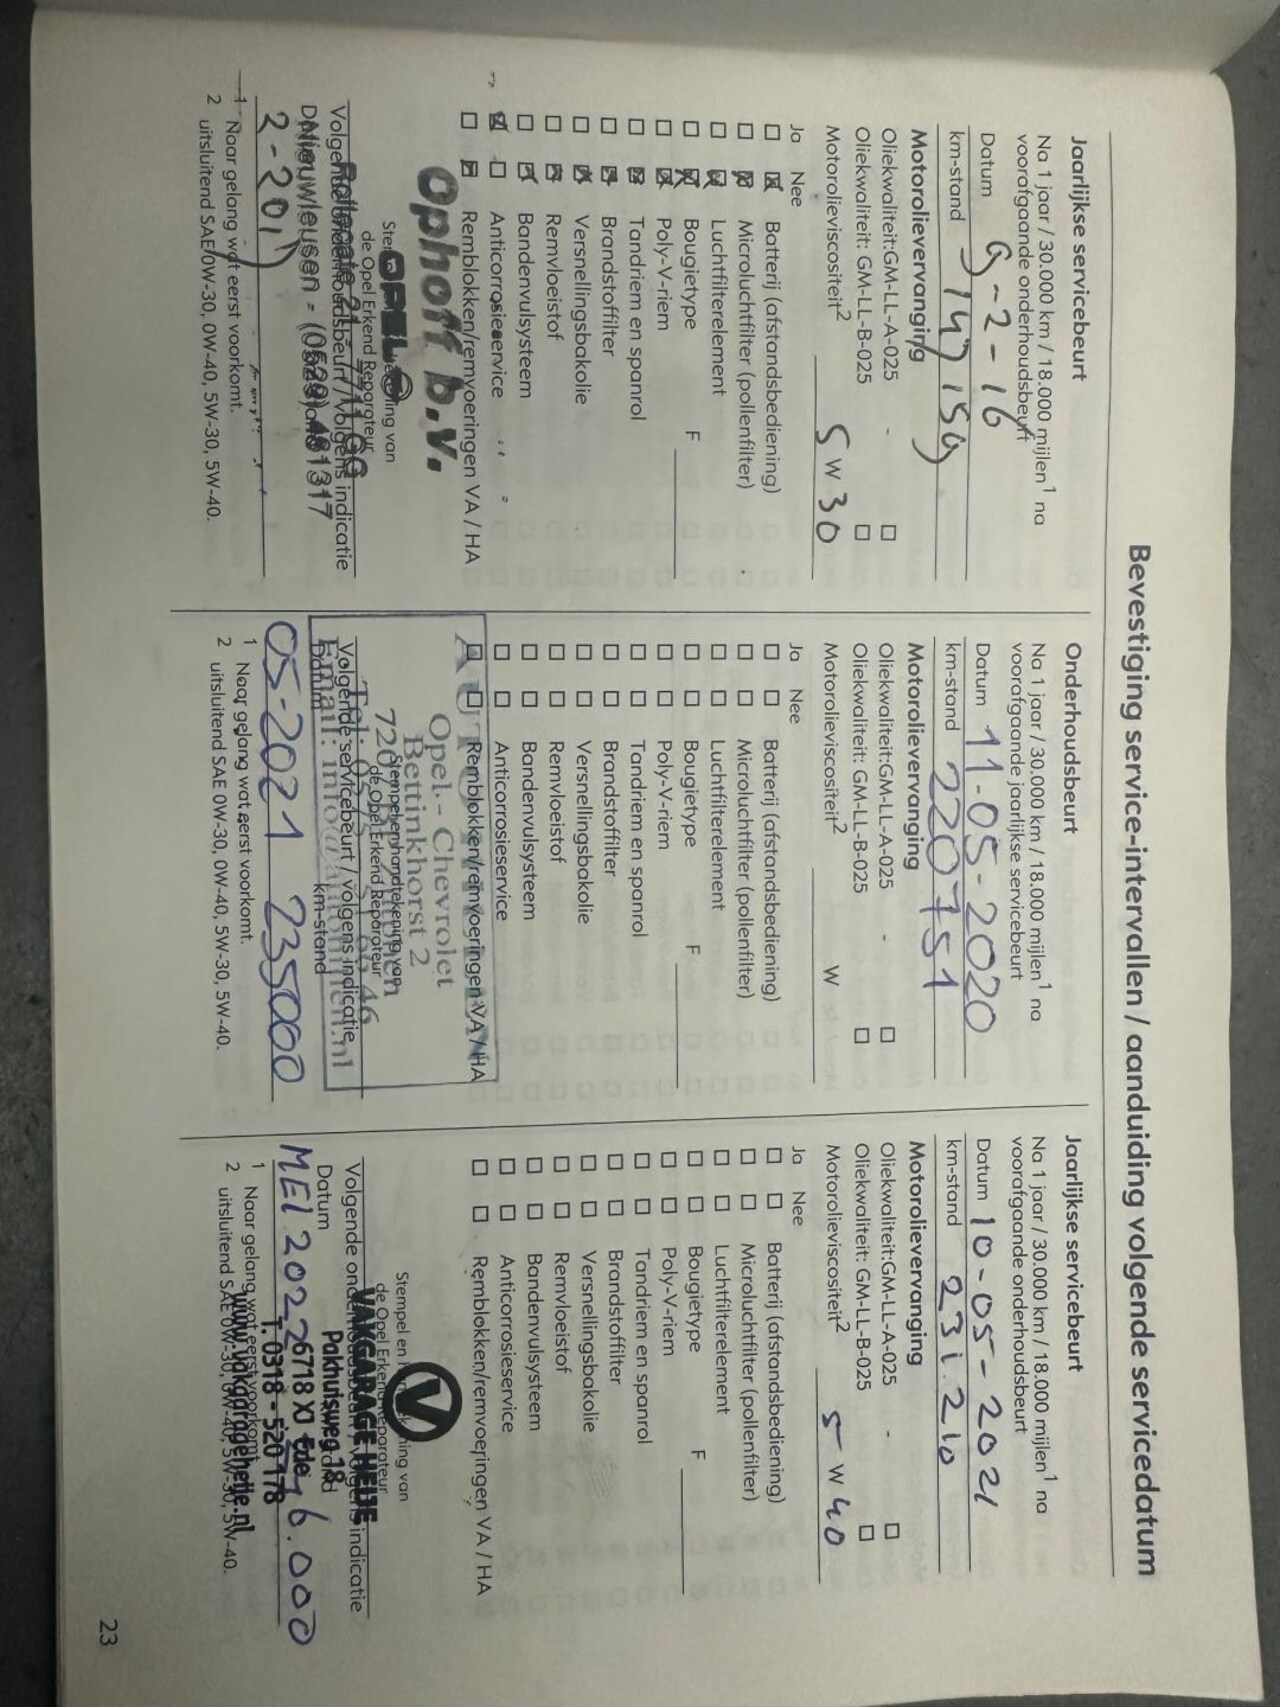 Bevestiging service-intervallen / aanduiding volgende servicedatum
Jaarlijkse servicebeurt
Na 1 jaar / 30.000 km / 18.000 mijlen1 na
voorafgaande onderhoudsbeurt
Datum 9-2-16
km-stand 147159
Motorolievervanging
Oliekwaliteit:GM-LL-A-025 - ☐
Oliekwaliteit: GM-LL-B-025 ☐
Motorolieviscositeit2 5W30
Ja Nee
☐ ☒ Batterij (afstandsbediening)
☐ ☒ Microluchtfilter (pollenfilter)
☐ ☒ Luchtfilterelement
☐ ☒ Bougietype F
☐ ☒ Poly-V-riem
☐ ☒ Tandriem en spanrol
☐ ☒ Brandstoffilter
☐ ☒ Versnellingsbakolie
☐ ☒ Remvloeistof
☐ ☒ Bandenvulsysteem
☒ ☐ Anticorrosieservice
☐ ☒ Remblokken/remvoeringen VA / HA
Ophoff b.v.
OPEL
de Opel Erkend Reparateur
Nieuwleusen - (0529) 481317
2-201
1 Naar gelang wat eerst voorkomt.
2 uitsluitend SAE 0W-30, 0W-40, 5W-30, 5W-40.
Onderhoudsbeurt
Na 1 jaar / 30.000 km / 18.000 mijlen1 na
voorafgaande jaarlijkse servicebeurt
Datum 11-05-2020
km-stand 220751
Motorolievervanging
Oliekwaliteit:GM-LL-A-025 - ☐
Oliekwaliteit: GM-LL-B-025 ☐
Motorolieviscositeit2 W
Ja Nee
☐ ☐ Batterij (afstandsbediening)
☐ ☐ Microluchtfilter (pollenfilter)
☐ ☐ Luchtfilterelement
☐ ☐ Bougietype F
☐ ☐ Poly-V-riem
☐ ☐ Tandriem en spanrol
☐ ☐ Brandstoffilter
☐ ☐ Versnellingsbakolie
☐ ☐ Remvloeistof
☐ ☐ Bandenvulsysteem
☐ ☐ Anticorrosieservice
☐ ☐ Remblokken/remvoeringen VA / HA
Opel - Chevrolet
Bettinkhorst 2
Stempel en handtekening van
de Opel Erkend Reparateur
Volgende servicebeurt / volgens indicatie
Datum km-stand
05-2021 235000
1 Naar gelang wat eerst voorkomt.
2 uitsluitend SAE 0W-30, 0W-40, 5W-30, 5W-40.
Jaarlijkse servicebeurt
Na 1 jaar / 30.000 km / 18.000 mijlen1 na
voorafgaande onderhoudsbeurt
Datum 10-05-2021
km-stand 231.210
Motorolievervanging
Oliekwaliteit:GM-LL-A-025 - ☐
Oliekwaliteit: GM-LL-B-025 ☐
Motorolieviscositeit2 5W40
Ja Nee
☐ ☐ Batterij (afstandsbediening)
☐ ☐ Microluchtfilter (pollenfilter)
☐ ☐ Luchtfilterelement
☐ ☐ Bougietype F
☐ ☐ Poly-V-riem
☐ ☐ Tandriem en spanrol
☐ ☐ Brandstoffilter
☐ ☐ Versnellingsbakolie
☐ ☐ Remvloeistof
☐ ☐ Bandenvulsysteem
☐ ☐ Anticorrosieservice
☐ ☐ Remblokken/remvoeringen VA / HA
V
VAKGARAGE HEIJE
Pakhuisweg 18
6718 XJ Ede
T. 0318 - 520 178
www.vakgarageheije.nl
Datum
MEI 2022
1 Naar gelang wat eerst voorkomt.
2 uitsluitend SAE 0W-30, 0W-40, 5W-30, 5W-40.
23